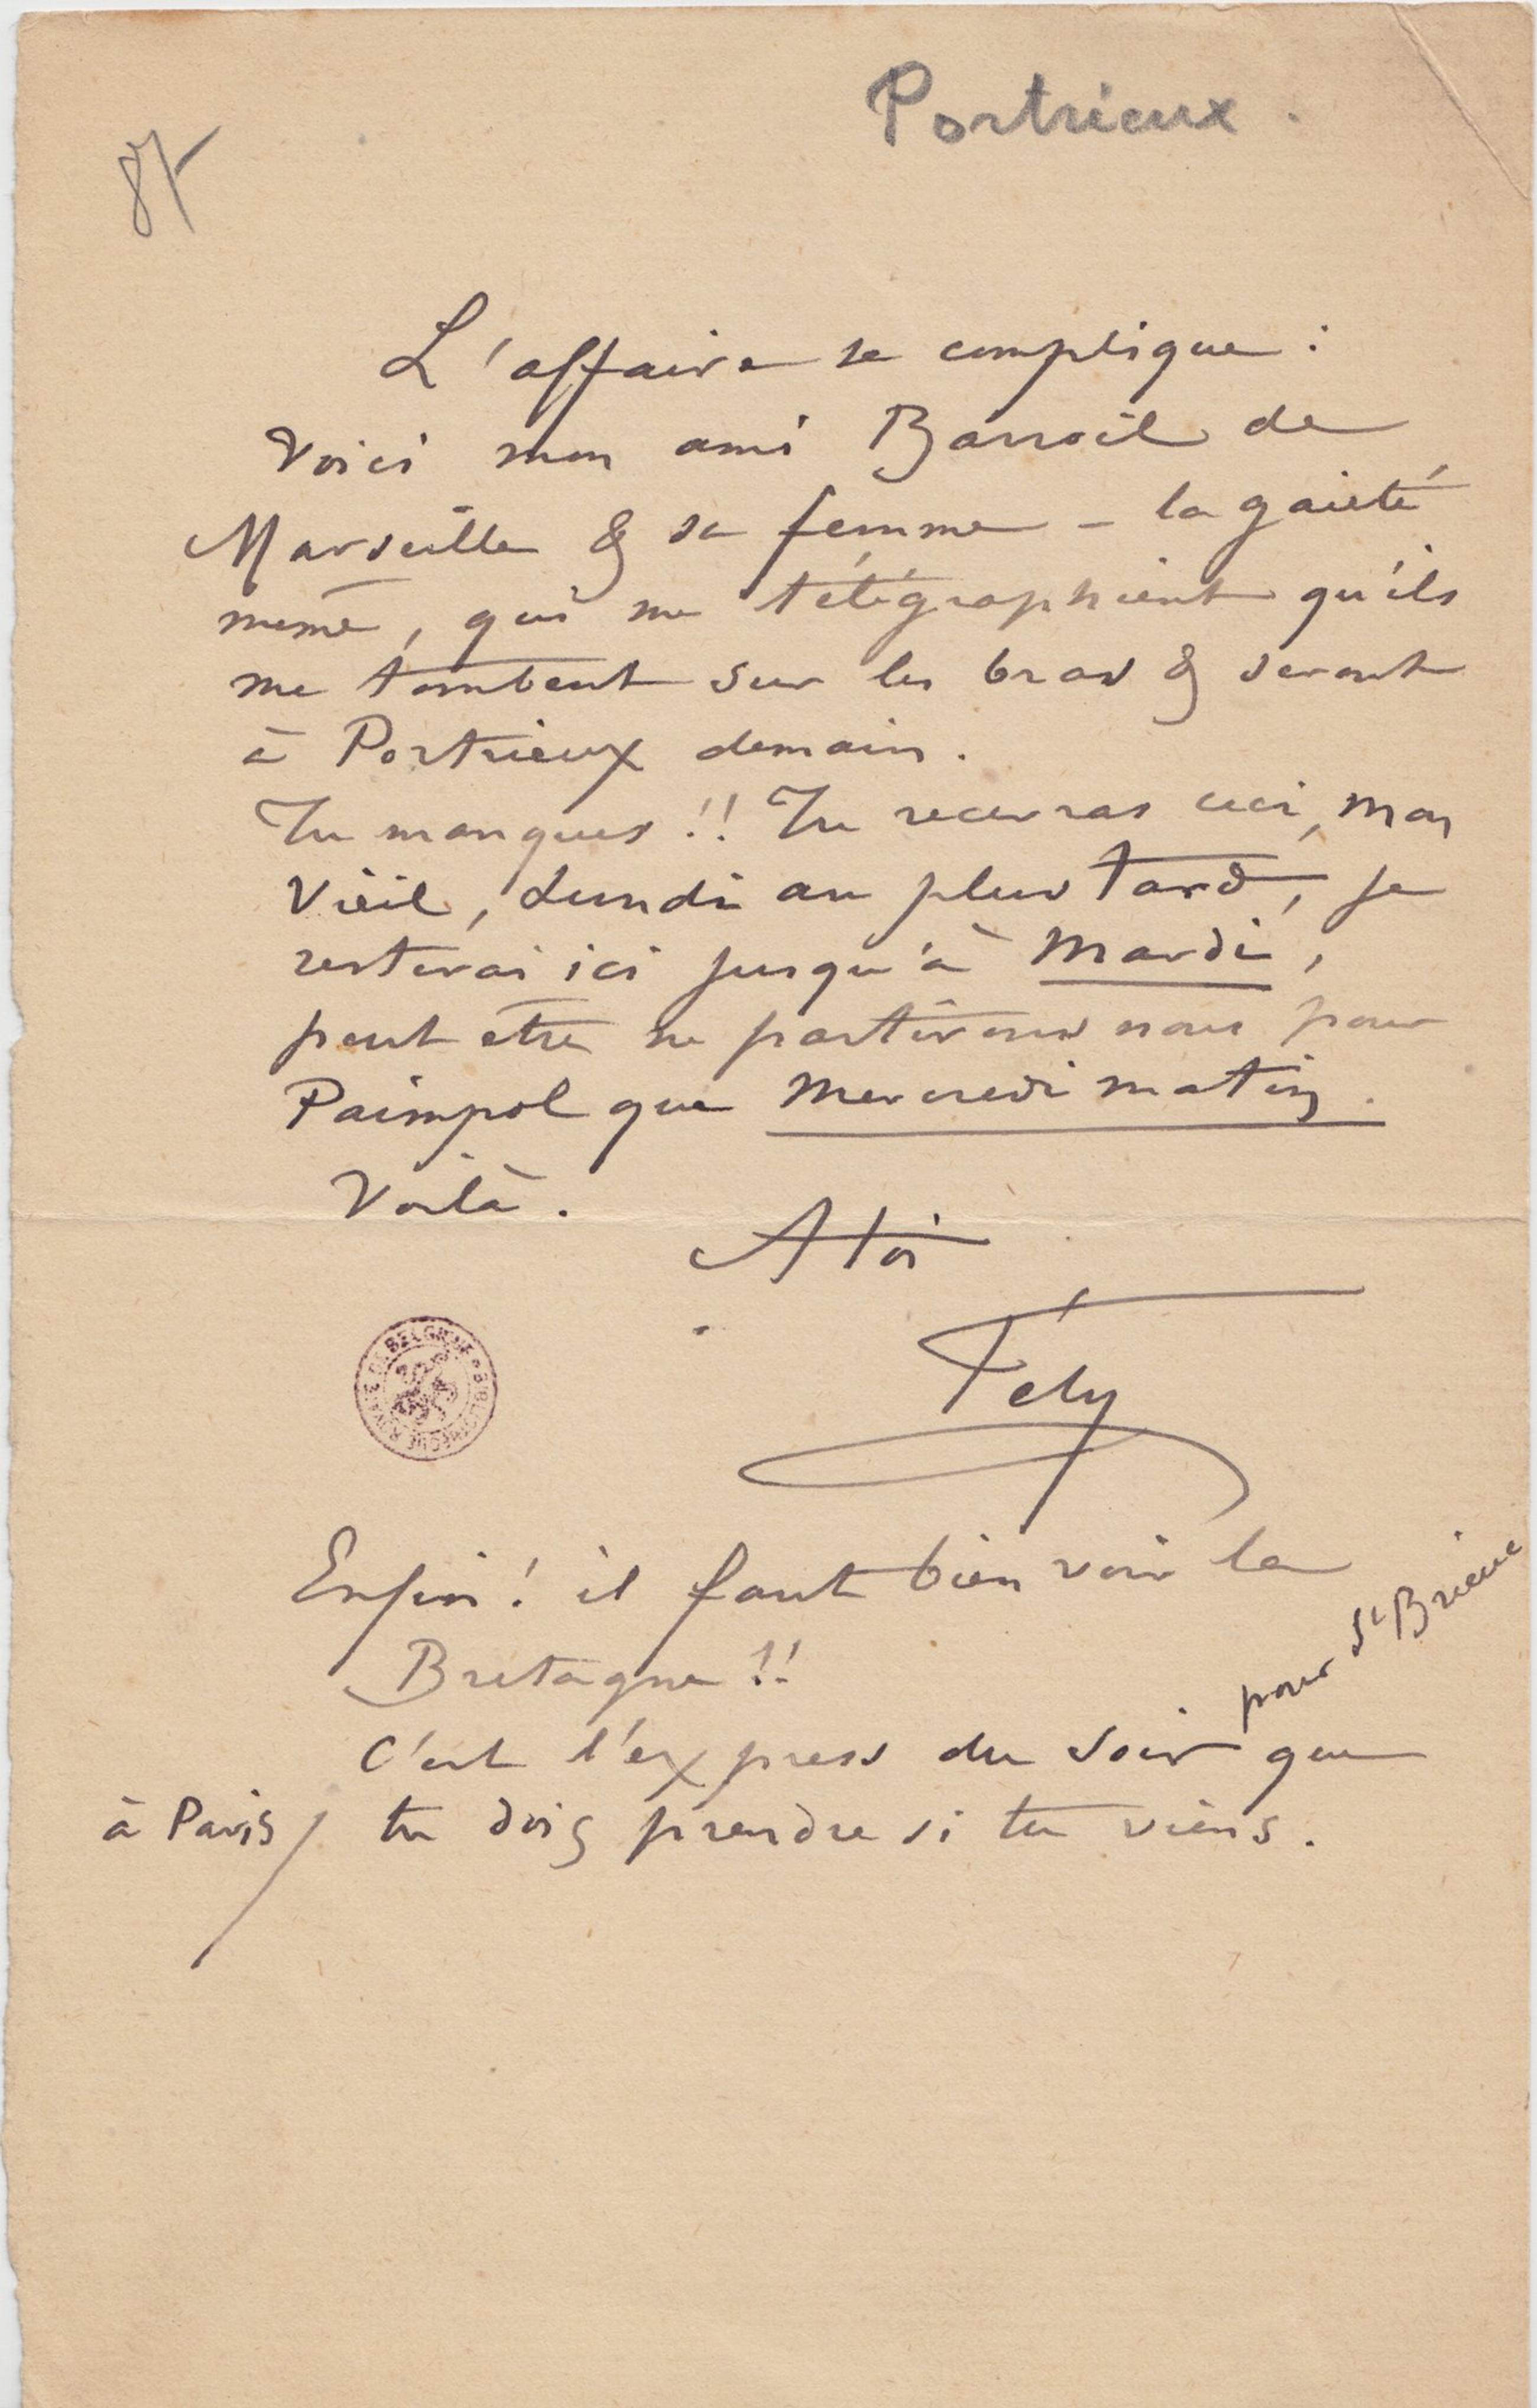 Portrieux.
87
L'affaire se complique :
Voici mon ami Barroil de
Marseille & sa femme – la gaieté
même, qui me télégraphient qu'ils
me tombent sur les bras & seront
à Portrieux demain.
Tu manques !! Tu recevras ceci, mon
Vieil, Lundi au plus tard, je
resterai ici jusqu'à Mardi,
peut etre ne partirons nous pour
Paimpol que Mercredi matin.
Voilà.
A toi
Fély
BIBLIOTHEQUE ROYALE DE BELGIQUE
Enfin ! il faut bien voir la
Bretagne !!
C'est l'express du soir pour St Brieuc que
à Paris / tu dois prendre si tu viens.